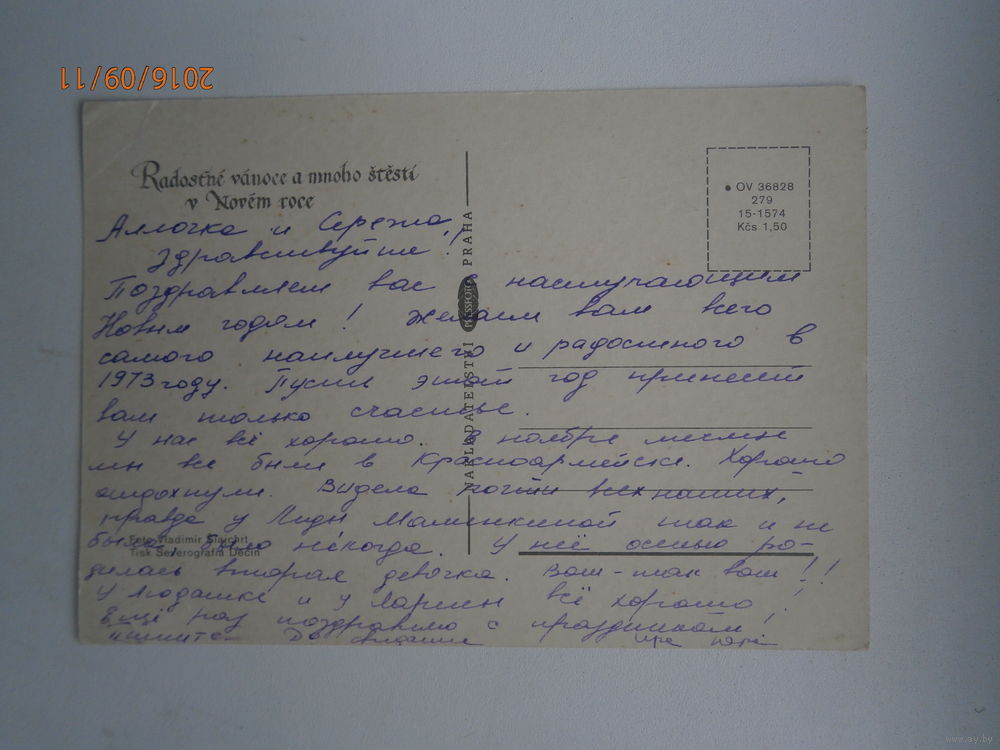 2016/09/11
Radostné vánoce a mnoho štěstí
v Novém roce
• OV 36828
279
15-1574
Kčs 1,50
NAKLADATELSTVÍ PRESSFOTO PRAHA
Аллочка и Сережа,
Здравствуйте!
Поздравляем вас с наступающим
Новым годом! Желаем вам всего
самого наилучшего и радостного в
1973 году. Пусть этот год принесёт
вам только счастье.
У нас всё хорошо. В ноябре месяце
мы все были в Красноармейске. Хорошо
отдохнули. Видела почти всех наших,
правда у Лиды так и не
была, было некогда. У неё осенью ро-
дилась вторая девочка. Вот-так вот!!
У Людашки и у Ларисы всё хорошо!
Ещё раз поздравляю с праздником!
Пишите. До свидания
Foto Vladimír
Tisk Severografia Děčín
www.ay.by